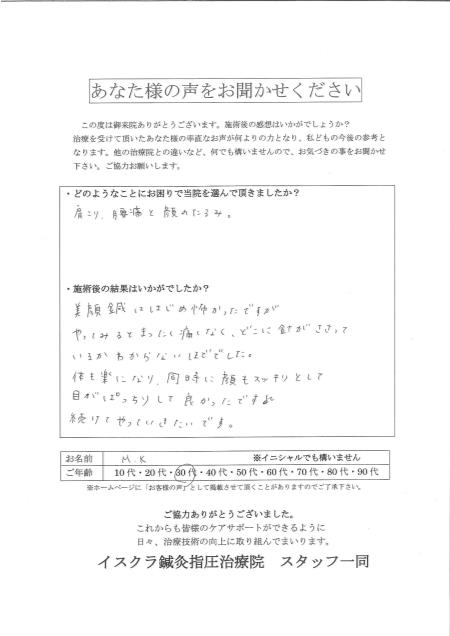 あなた様の声をお聞かせください
この度は御来院ありがとうございます。施術後の感想はいかがでしょうか?
治療を受けて頂いたあなた様の率直なお声が何よりの力となり、私どもの今後の参考と
なります。他の治療院との違いなど、何でも構いませんので、お気づきの事をお聞かせ
下さい。ご協力お願いします。
・どのようなことにお困りで当院を選んで頂きましたか?
肩こり、腰痛と顔のたるみ。
・施術後の結果はいかがでしたか?
美顔鍼ははじめ怖かったですが
やってみるとまったく痛くなく、どこに針がささって
いるかわからないほどでした。
体も楽になり、同時に顔もスッキリとして
目がぱっちりして良かったですね
続けてやっていきたいです。
お名前 M.K ※イニシャルでも構いません
ご年齢 10代・20代・30代・40代・50代・60代・70代・80代・90代
※ホームページに「お客様の声」として掲載させて頂くことがありますのでご了承下さい。
ご協力ありがとうございました。
これからも皆様のケアサポートができるように
日々、治療技術の向上に取り組んでまいります。
イスクラ鍼灸指圧治療院 スタッフ一同